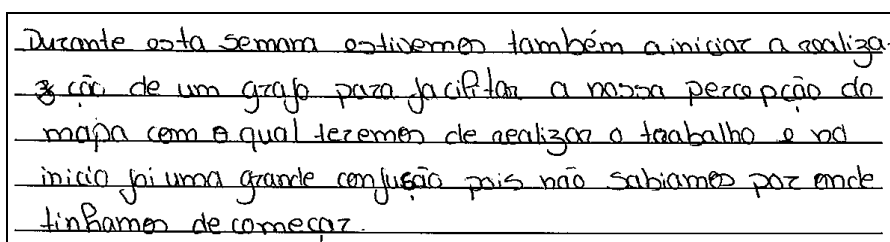 Durante esta semana estivemos também a iniciar a realiza-
ção de um grafo para facilitar a nossa percepção do
mapa com o qual teremos de realizar o trabalho e no
inicio foi uma grande confusão pois não sabiamos por onde
tinhamos de começar.